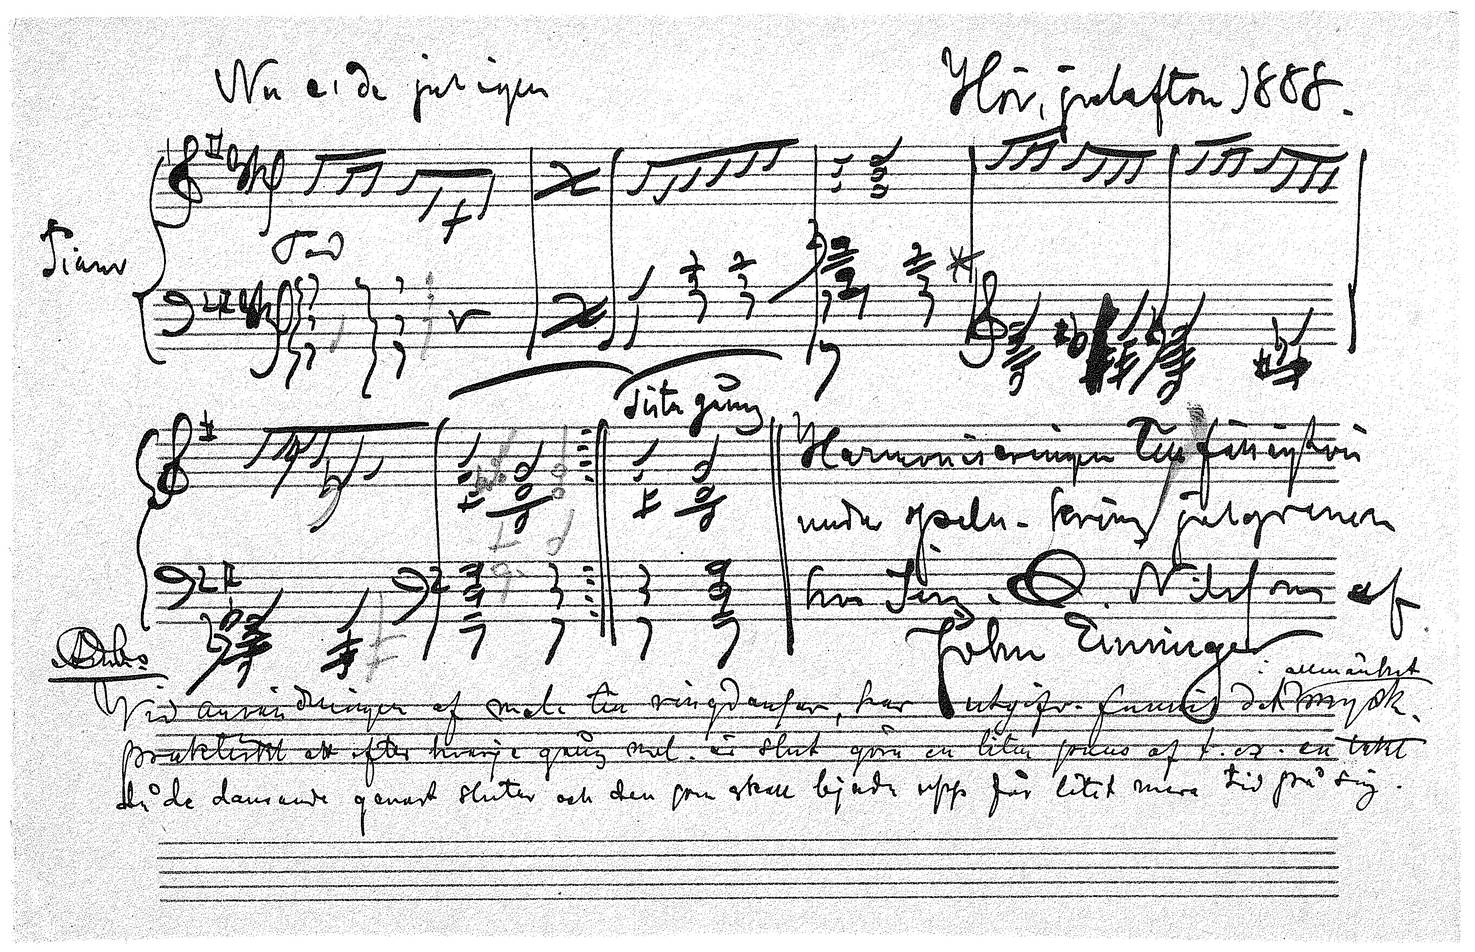 Nu ä' de' jul igen
Hör, julafton 1888.
Piano
sista gång
Harmoniseringen
under speln. kring julgranen
hos Nilsson af
John Enninger
i allmänhet
Vid användningen af mel. till ringdansar, har utgifv. funnit det myck.
praktiskt att efter hvarje gång mel. är slut göra en liten paus af t. ex. en takt
då de dansande genast sluter och den som skall bjuda upp får litet mera tid på sig.